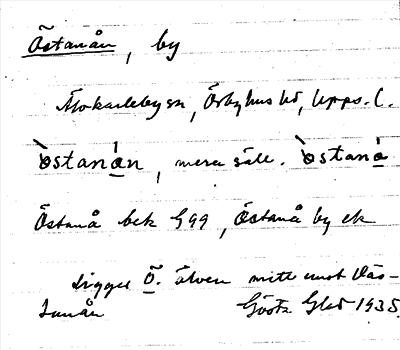 Östanån, by
Älvkarleby sn, Örbyhus hd, Upps. l.
`östanán, mera säll. `östaná
Östanå bek G99, Östanå by ek
Ligger Ö. älven mitt emot Väs-
tanån Gösta Glad 1935.